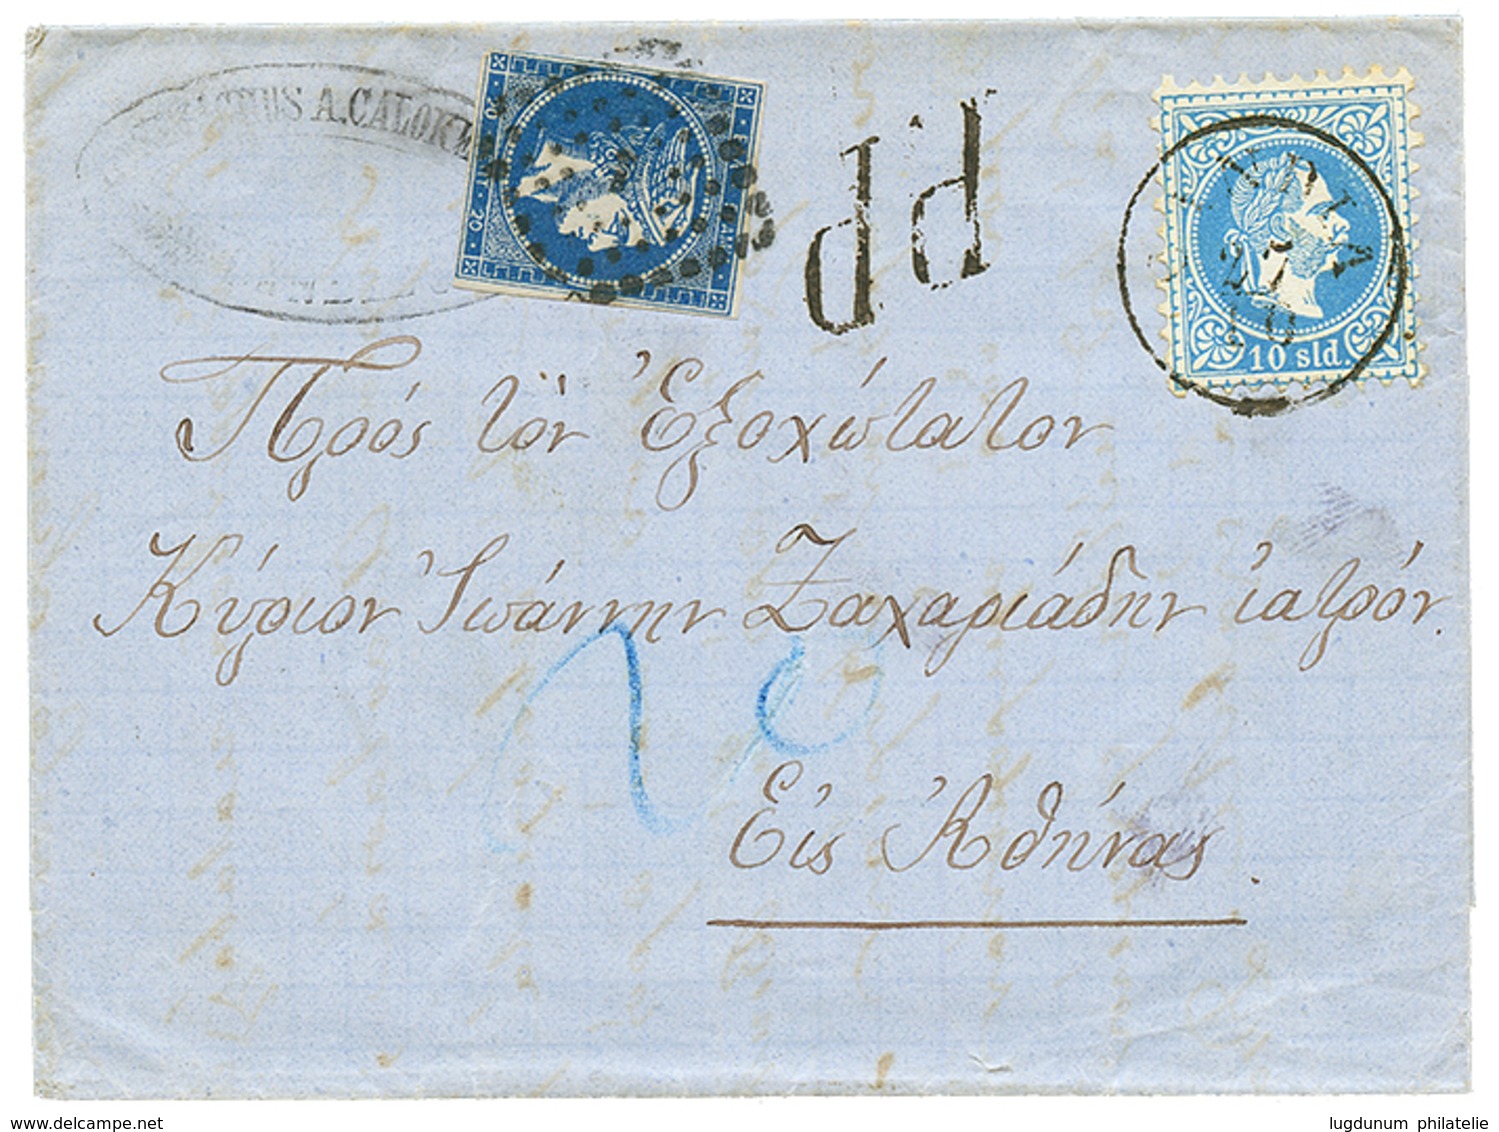 A. CALOKE
PP
27
10 sld.
20
20
Πρὸς τὸν Ἐξοχώτατον
Κύριον Ἰωάννην Ζαχαριάδην ἰατρόν.
20
Εἰς Ἀθήνας.
delcampe.net
lugdunum philatelie